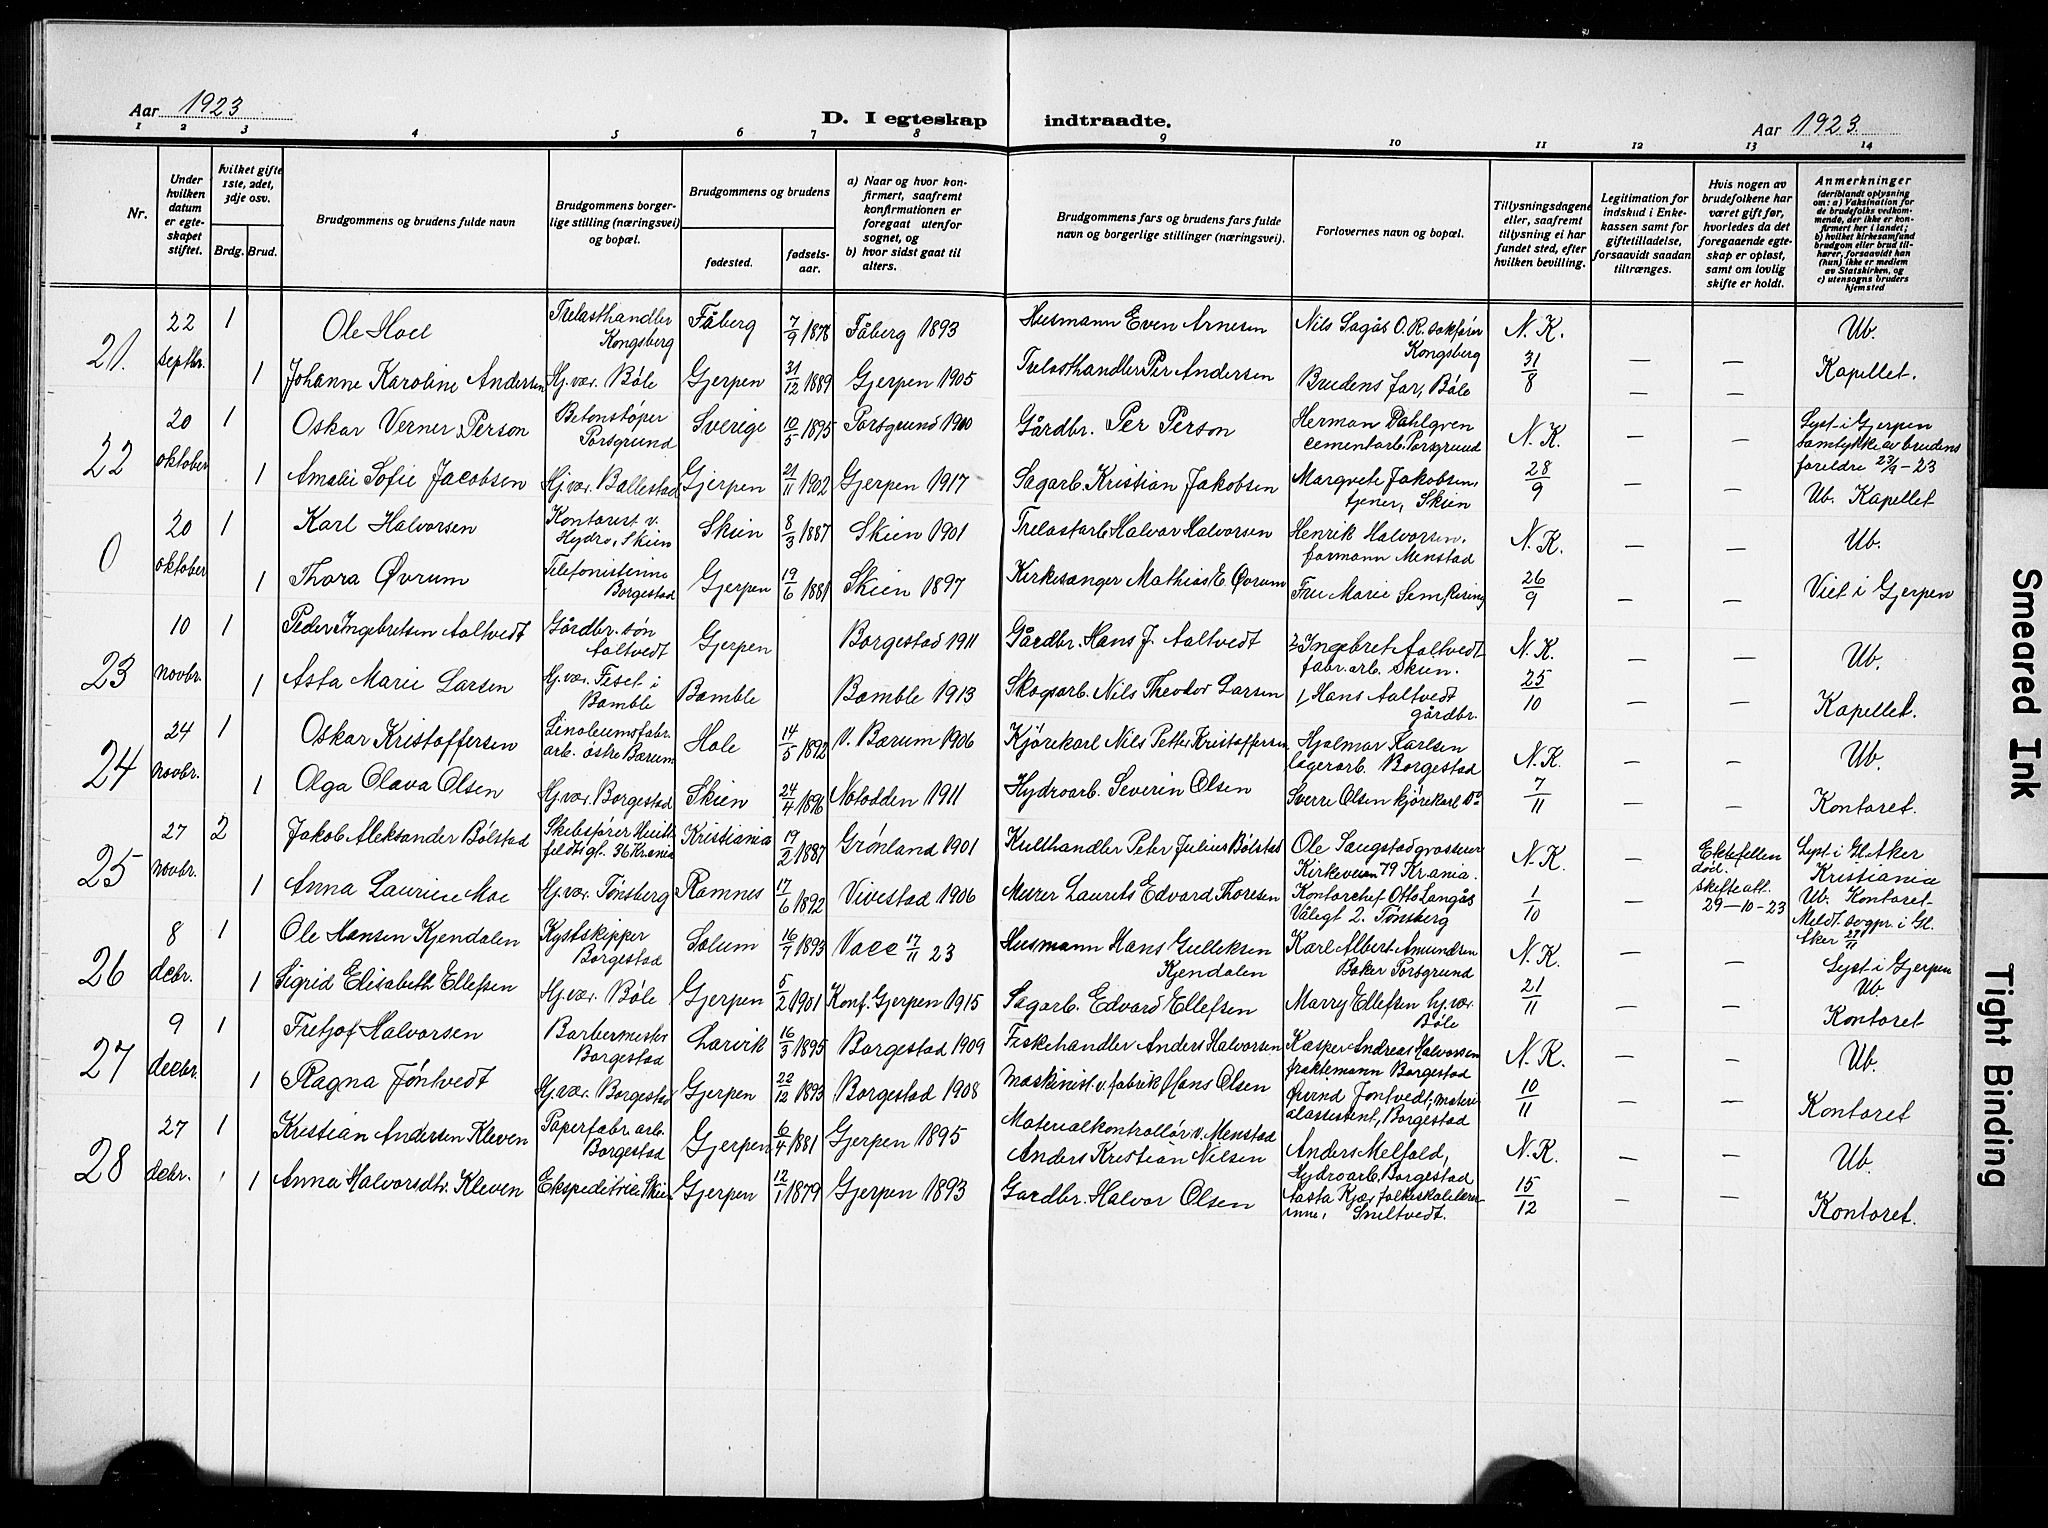 Aar 1923
D. I egteskap indtraadte.
Aar 1923.
1 2 3 4 5 6 7 8 9 10 11 12 13 14
Nr.
Under hvilken datum er egteskapet stiftet.
hvilket gifte 1ste, 2det, 3dje osv.
Brdg. Brud.
Brudgommens og brudens fulde navn
Brudgommens borgerlige stilling (næringsvei) og bopæl.
Brudgommens og brudens
fødested.
fødselsaar.
a) Naar og hvor konfirmert, saafremt konfirmationen er foregaat utenfor sognet, og
b) hvor sidst gaat til alters.
Brudgommens fars og brudens fars fulde navn og borgerlige stillinger (næringsvei).
Forlovernes navn og bopæl.
Tillysningsdagene eller, saafremt tillysning ei har fundet sted, efter hvilken bevilling.
Legitimation for indskud i Enkekassen samt for giftetilladelse, forsaavidt saadan tiltrænges.
Hvis nogen av brudefolkene har været gift før, hvorledes da det foregaaende egteskap er opløst, samt om lovlig skifte er holdt.
Anmerkninger
(deriblandt oplysning om: a) Vaksination for de brudefolks vedkommende, der ikke er konfirmert her i landet;
b) hvilket kirkesamfund brudgom eller brud tilhører, forsaavidt han (hun) ikke er medlem av Statskirken, og
c) utensogns bruders hjemsted
21. 22 septbr. 1 Ole Hoel Trelasthandler Kongsberg Fåberg 7/9 1878 Fåberg 1893 Husmann Even Arnesen Nils Sagås O.R. sakfører Kongsberg N.K. — — Ub.
1 Johanne Karoline Andersen Hj. vær. Bøle Gjerpen 31/12 1889 Gjerpen 1905 Trelasthandler Per Andersen Brudens far, Bøle 31/8 — — Kapellet.
22 20 oktober 1 Oskar Verner Person Betonstøper Porsgrund Sverige 10/5 1895 Porsgrund 1910 Gårdbr. Per Person Herman Dahlgren cementarb. Porsgrund N.K. — — Lyst i Gjerpen samtykke av brudens foreldre 23/9 - 23
1 Amalie Sofie Jacobsen Hj. vær. Ballestad Gjerpen 21/11 1902 Gjerpen 1917 Sagarb. Kristian Jakobsen Margrete Jakobsen, tjener, Skien 28/9 — — Ub. Kapellet
0 20 oktober 1 Karl Halvorsen Kontorist v. Hydro, Skien Skien 8/3 1887 Skien 1901 Trelastarb. Halvor Halvorsen Henrik Halvorsen, formann Menstad N.K. — — Ub.
1 Thora Øvrum Telefonistenne Borgestad Gjerpen 19/6 1881 Skien 1897 Kirkesanger Mathias E. Øvrum Fru Marie Sem Rising 26/9 — — Viet i Gjerpen
23 10 novbr. 1 Peder Ingebretsen Aaltvedt Gårdbr. søn Aaltvedt Gjerpen Borgestad 1911 Gårdbr. Hans J. Aaltvedt 2/ Ingebret Aaltvedt fabr. arb. Skien. N.K. — — Ub.
1 Asta Marie Larsen Hj. vær. Feset i Bamble Bamble Bamble 1913 Skogsarb. Nils Theodor Larsen 1/ Hans Aaltvedt gårdbr. 25/10 — — Kapellet.
24 24 novbr. 1 Oskar Kristoffersen Linoleumsfabr. arb. østre Bærum Hole 14/5 1892 V. Bærum 1906 Kjørekarl Nils Petter Kristoffersen Hjalmar Karlsen lagerarb. Borgestad N.K. — — Ub.
1 Olga Olava Olsen Hj. vær. Borgestad Skien 24/4 1896 Notodden 1911 Hydroarb. Severin Olsen Sverre Olsen kjørekarl Do 7/11 — — Kontoret.
25 27 novbr. 2 Jakob Aleksander Bølstad Skibsfører Huitfeldtsgt. 36 Krania Kristiania 19/2 1887 Grønland 1901 Kullhandler Peter Julius Bølstad Ole Saugstad grosserer Kirkeveien 79 Krania. N.K. — Ektefellen død. skifteatt. 29-10-23 Lyst i Gl. Aker Kristiania
1 Anna Laurine Moe Hj. vær. Tønsberg Ramnes 17/6 1892 Vivestad 1906 Murer Laurits Edvard Thoresen Kontorchef Otto Langås Vålegt 2. Tønsberg 1/10 — Ub. Kontoret Meldt sogpr. i Gl. Aker 27/11
26 8 debr. 1 Ole Hansen Kjendalen Kystskipper Borgestad Solum 16/7 1893 Vacc 17/11 23 Husmann Hans Gulleksen Kjendalen Karl Albert Amundsen Baker Porsgrund N.K. — — Lyst i Gjerpen Ub.
1 Sigrid Elisabeth Ellefsen Hj. vær. Bøle Gjerpen 5/2 1901 Konf. Gjerpen 1915 Sagarb. Edvard Ellefsen Marry Ellefsen hj. vær. Bøle 21/11 — — Kontoret
27 9 decbr. 1 Fretjof Halvorsen Barbermester Borgestad Larvik 16/3 1895 Borgestad 1909 Fiskehandler Anders Halvorsen Kasper Andreas Halvorsen fraktemann Borgestad N.K. — — Ub.
1 Ragna Jøntvedt Hj. vær. Borgestad Gjerpen 22/12 1893 Borgestad 1908 Maskinist v. fabrik Hans Olsen Øivind Jøntvedt, materialassistent, Borgestad 10/11 — — Kontoret
28 27 debr. 1 Kristian Andersen Kleven Papirfabr. arb. Borgestad Gjerpen 6/4 1881 Gjerpen 1895 Materialkontrollør v. Menstad Anders Kristian Nilsen Anders Melfald, Hydroarb. Borgestad N.K. — — Ub.
1 Anna Halvorsdtr. Kleven Ekspeditrice Skien Gjerpen 12/1 1879 Gjerpen 1893 Gardbr. Halvor Olsen Aasta Kjær folkeskolelærerinne, Sneltvedt. 15/12 — — Kontoret.
Smeared Ink
Tight Binding